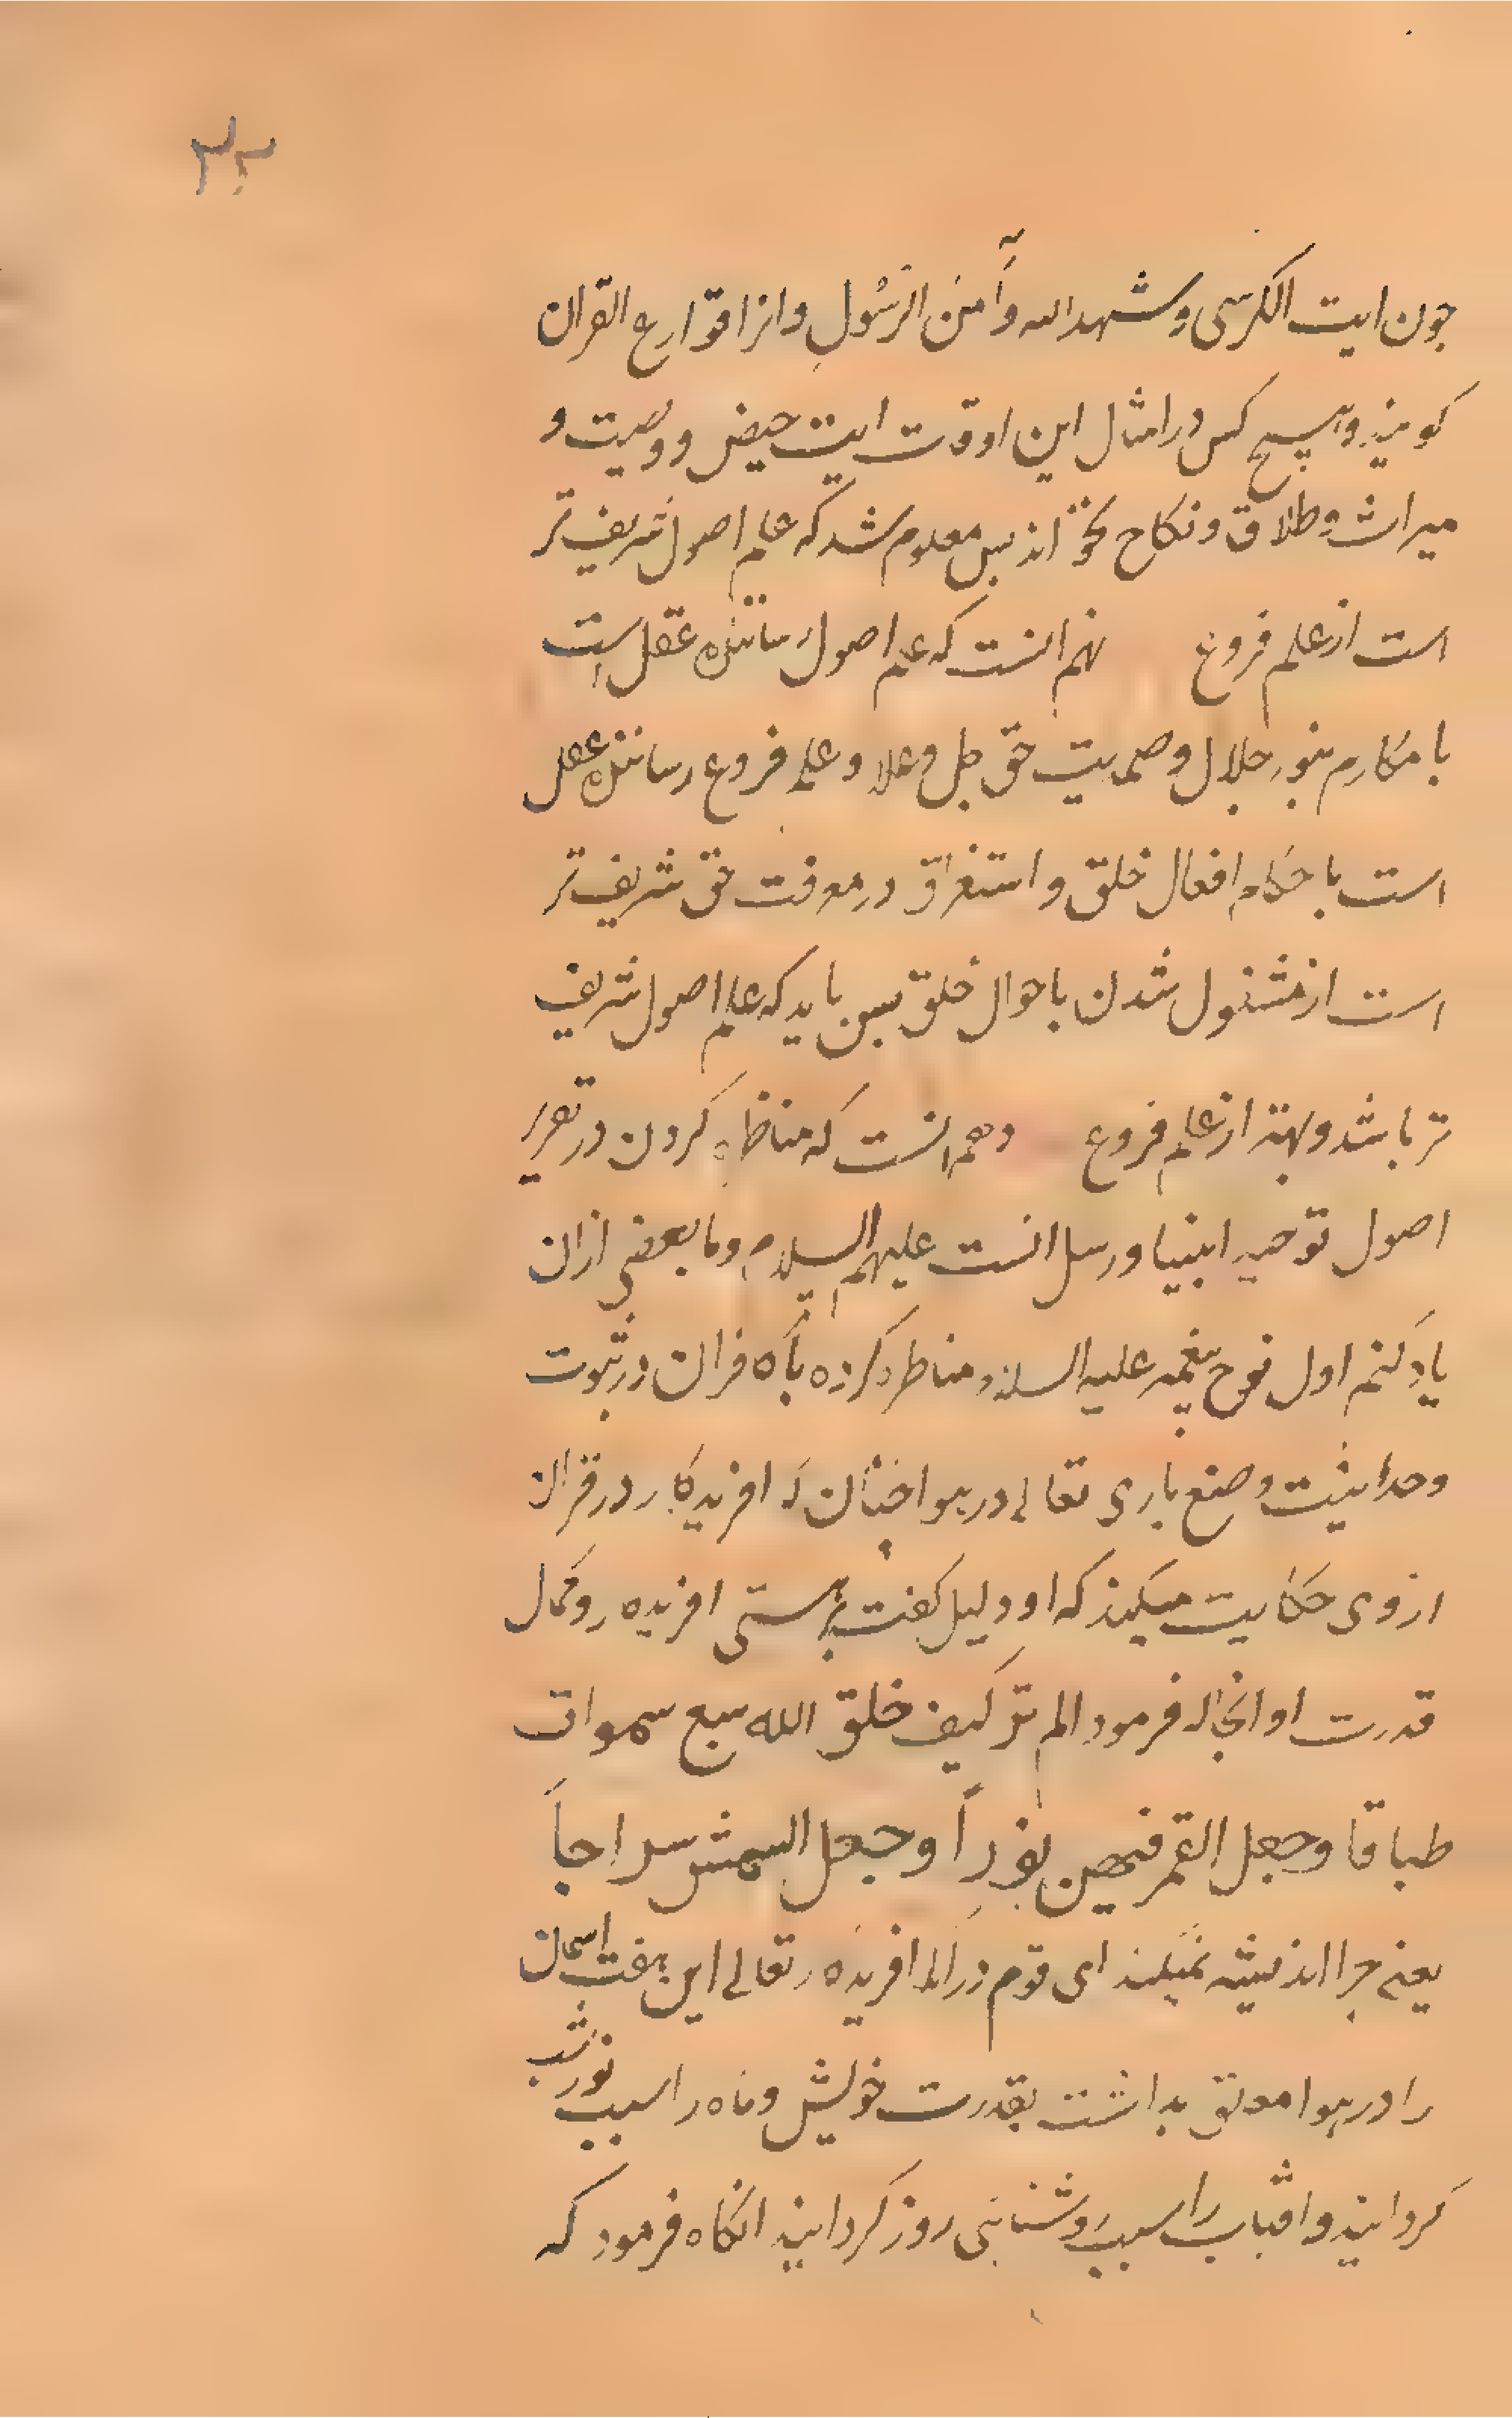 ۳۲
جون ایت الکرسی وشهد الله وآمن الرّسُول وانرا قوارع القران
کویند وهیچ کس در امثال این اوقات ایت حیض ووصیت و
میراث وطلاق ونکاح نخواند بس معلوم شد که علم اصول شریف تر
است از علم فروع نهم انست که علم اصول رساننده عقل است
با مکارم بنور جلال وصمدیت حق جل وعلا وعلم فروع رساننده عقل
است باحکام افعال خلق واستغراق در معرفت حق شریف تر
است از مشغول شدن باحوال خلق بس باید که علم اصول شریف
تر باشد وبهتر از علم فروع دهم انست که مناظره کردن در تقریر
اصول توحید انبیا ورسل انست علیهم السلام وما بعضی ازان
یاد کنم اول نوح بیغمبر علیه السلام مناظره کرده با کافران در ثبوت
وحدانیت وصنع باری تعالی در هوا جنان که افریدکار در قران
ازوی حکایت میکند که او دلیل کفت بر هستی افریدکار وکمال
قدرت او انجا که فرمود الم تر کیف خلق الله سبع سموات
طباقا وجعل القمر فیهن نوراً وجعل الشمس سراجاً
یعنی جرا اندیشه نمیکنند ای قوم در انک افریدکار تعالی این هفت اسمان
را در هوا معلق بداشت بقدرت خویش وماه را سبب نور شب
کردانید وافتاب را سبب روشنایی روز کردانید انکاه فرمود که